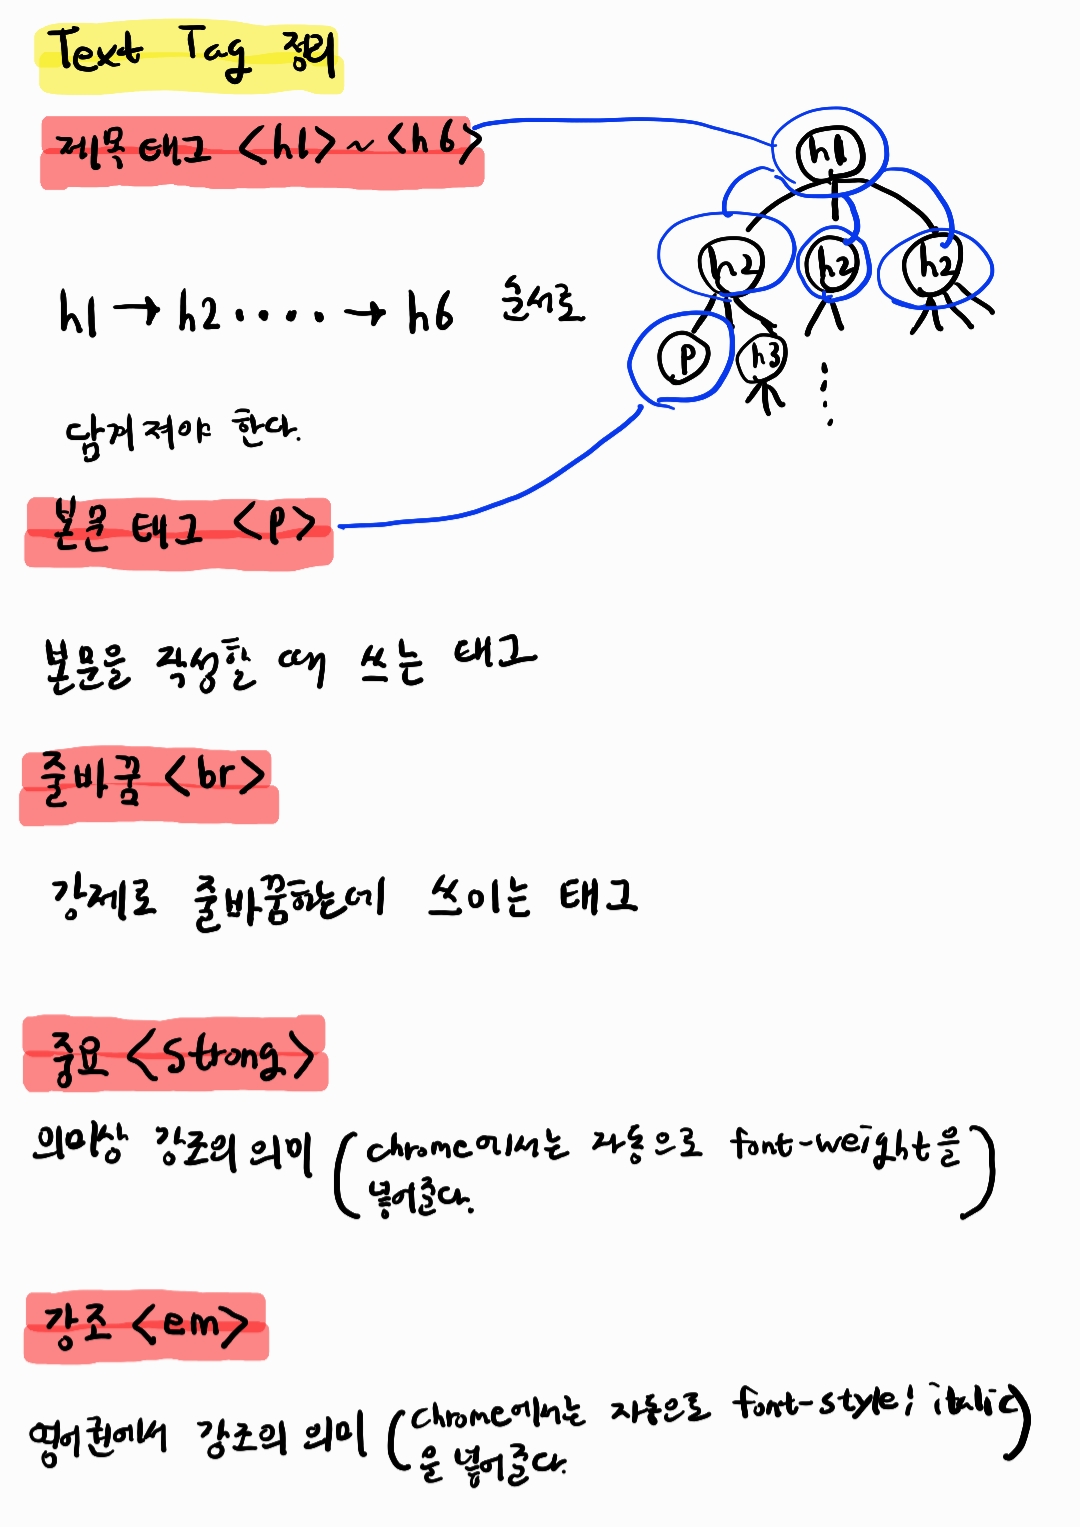 Text Tag 정리
제목태그 <h1>~<h6>
h1
h2 h2 h2
h1 → h2 ···· → h6 순서로
p h3
담겨져야 한다.
본문 태그 <p>
본문을 작성할 때 쓰는 태그
줄바꿈 <br>
강제로 줄바꿈하는데 쓰이는 태그
중요 <strong>
의미상 강조의 의미 (chrome에서는 자동으로 font-weight을
넣어준다.)
강조 <em>
영어권에서 강조의 의미 (chrome에서는 자동으로 font-style; italic
을 넣어준다.)